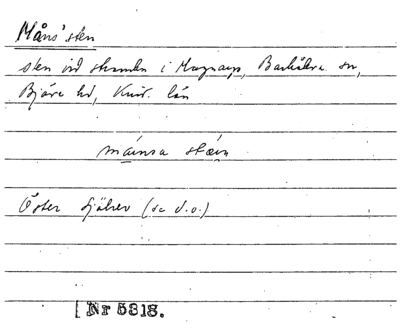 Måns' sten
sten vid stranden i Magnarp, Barkåkra sn,
Bjäre hd, Krist. län
månsa
Öster själrev (se d.o.)
[ Nr 5318.